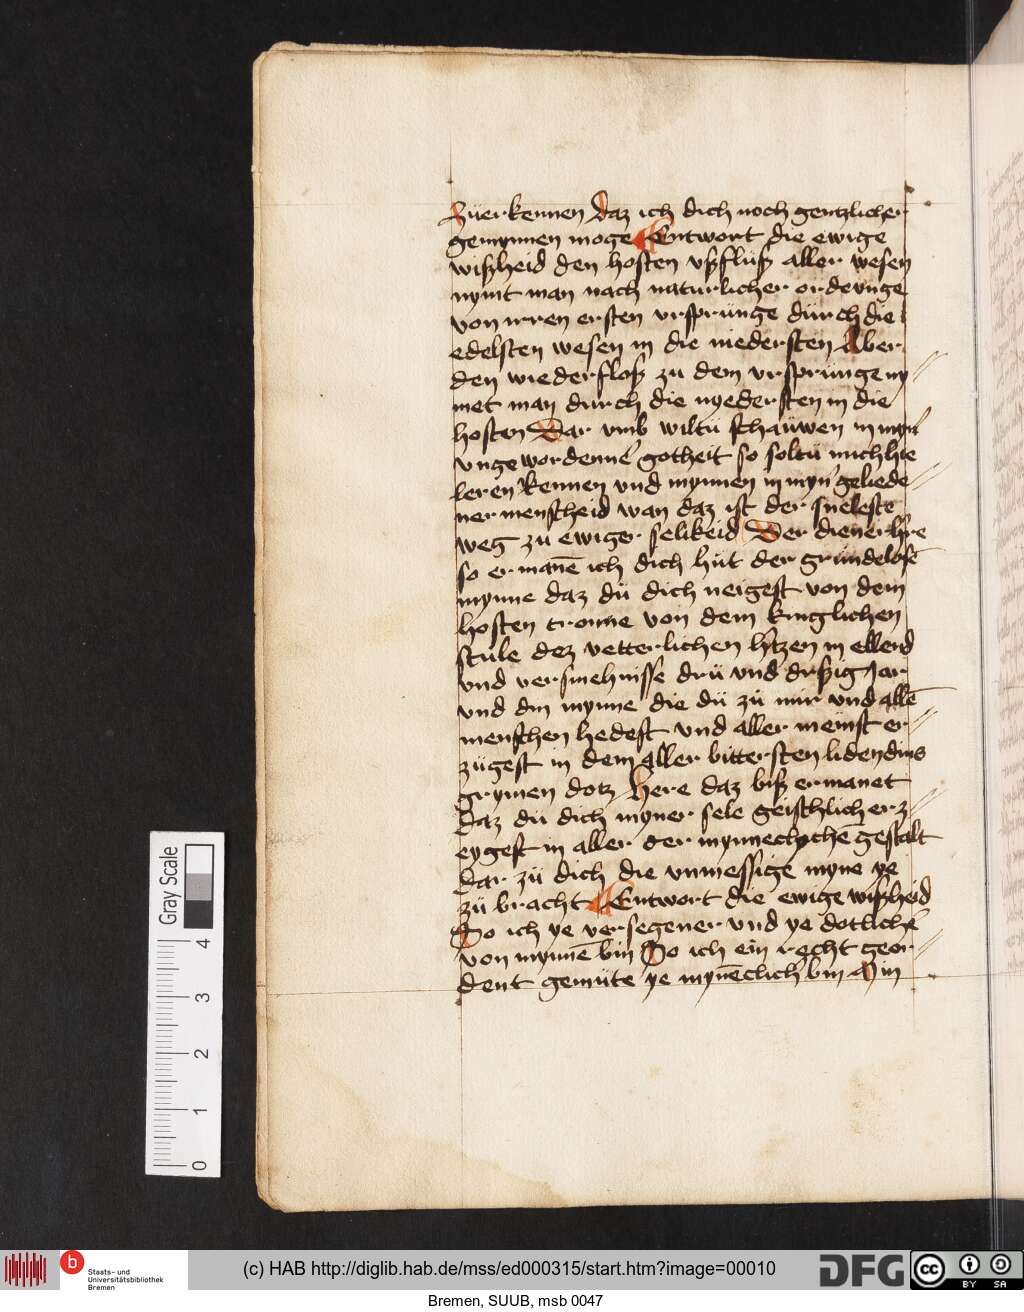 Zü erkennen daz ich dich noch gentzlicher
gemynnen moge Entwort die ewige
wißheid den hosten vßflüß aller wesen
nymt man nach naturlicher ordenunge
von irren ersten vrsprünge dürch die
edelsten wesen in die niedersten Aber
den wiederfloß zu dem vrsprünge ny
met man durch die nyedersten in die
hosten Dar vmb wiltü schaüwen in myn
vngewordenne gotheit so soltü mich hie
leren kennen und mynnen in myn geliede
ner menscheid wan daz ist der sneleste
weg zu ewiger selikeid Der diener h're
so ermanē ich dich hüt der gründelose
mynne daz dü dich neigest von dem
hosten tronne von dem kinglichen
stule dez vetterlichen h'tzen in ellend
vnd versmehnisse drü vnd drißig Jar
vnd din mynne die dü zü mir vnd allē
menschen hedest vnd aller meinst er
zügest in dem aller bittersten liden dins
grymen dotz here daz biß ermanet
daz dü dich myner sele geistlich erz
eygest in aller der mynneclichē gestalt
dar zü dich die vnmessige myne ye
zü bracht Entwort die ewige wißheid
So ich ye versegener vnd ye dotlicher
von mynnē bin So ich ein recht geor
dent gemüte ye mynēclich bin Min
Gray Scale
4
3
2
1
0
b
Staats- und
Universitätsbibliothek
Bremen
(c) HAB http://diglib.hab.de/mss/ed000315/start.htm?image=00010
DFG
cc
BY SA
Bremen, SUUB, msb 0047